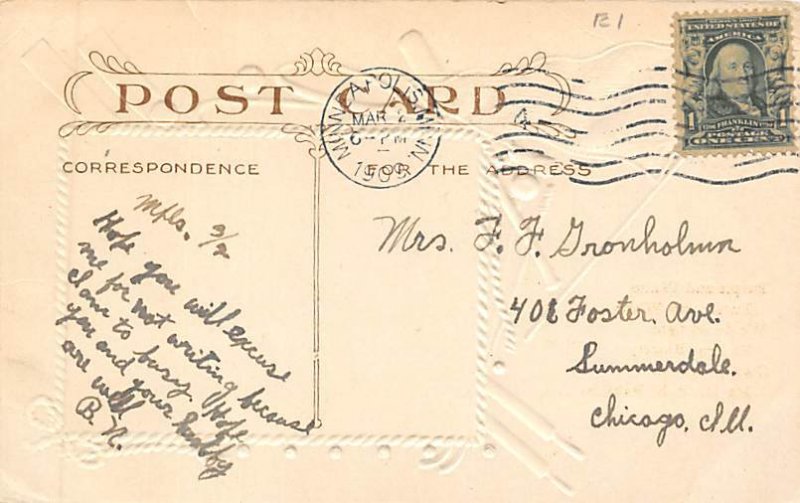 E1
UNITED STATES OF
AMERICA
1 FRANKLIN 1
POSTAGE
ONE CENT
POST CARD
MINNEAPOLIS, MINN.
MAR 2
PM
1909
4
CORRESPONDENCE
FOR THE ADDRESS
Mpls. 3/2
Hope you will excuse
me for not writing becuse
I am to busy. Hope
you and your hubby
are well
B. N.
Mrs. F. F. Gronholmn
408 Foster. Ave.
Summerdale.
Chicago, Ill.